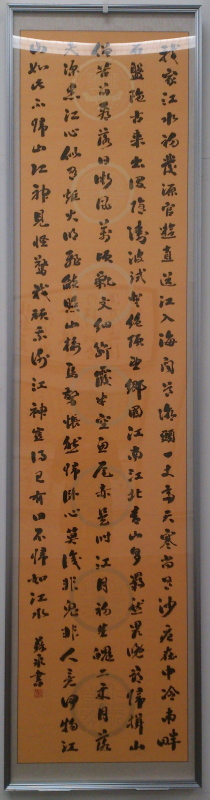 我家江水初發源宦遊直送江入海聞道潮頭一丈高天寒尚有沙痕在中冷南畔
石盤陀古來出没随濤波試登絶頂望鄉國江南江北青山多羈愁畏晚尋歸楫山
僧苦留看落日微風萬頃靴文細斷霞半空魚尾赤是時江月初生魄二更月落
天深黑江心似有炬火明飛燄照山棲鳥驚悵然歸卧心莫識非鬼非人竟何物江
山如此不歸山江神見怪驚我頑謝江神豈得已有田不歸如江水
書